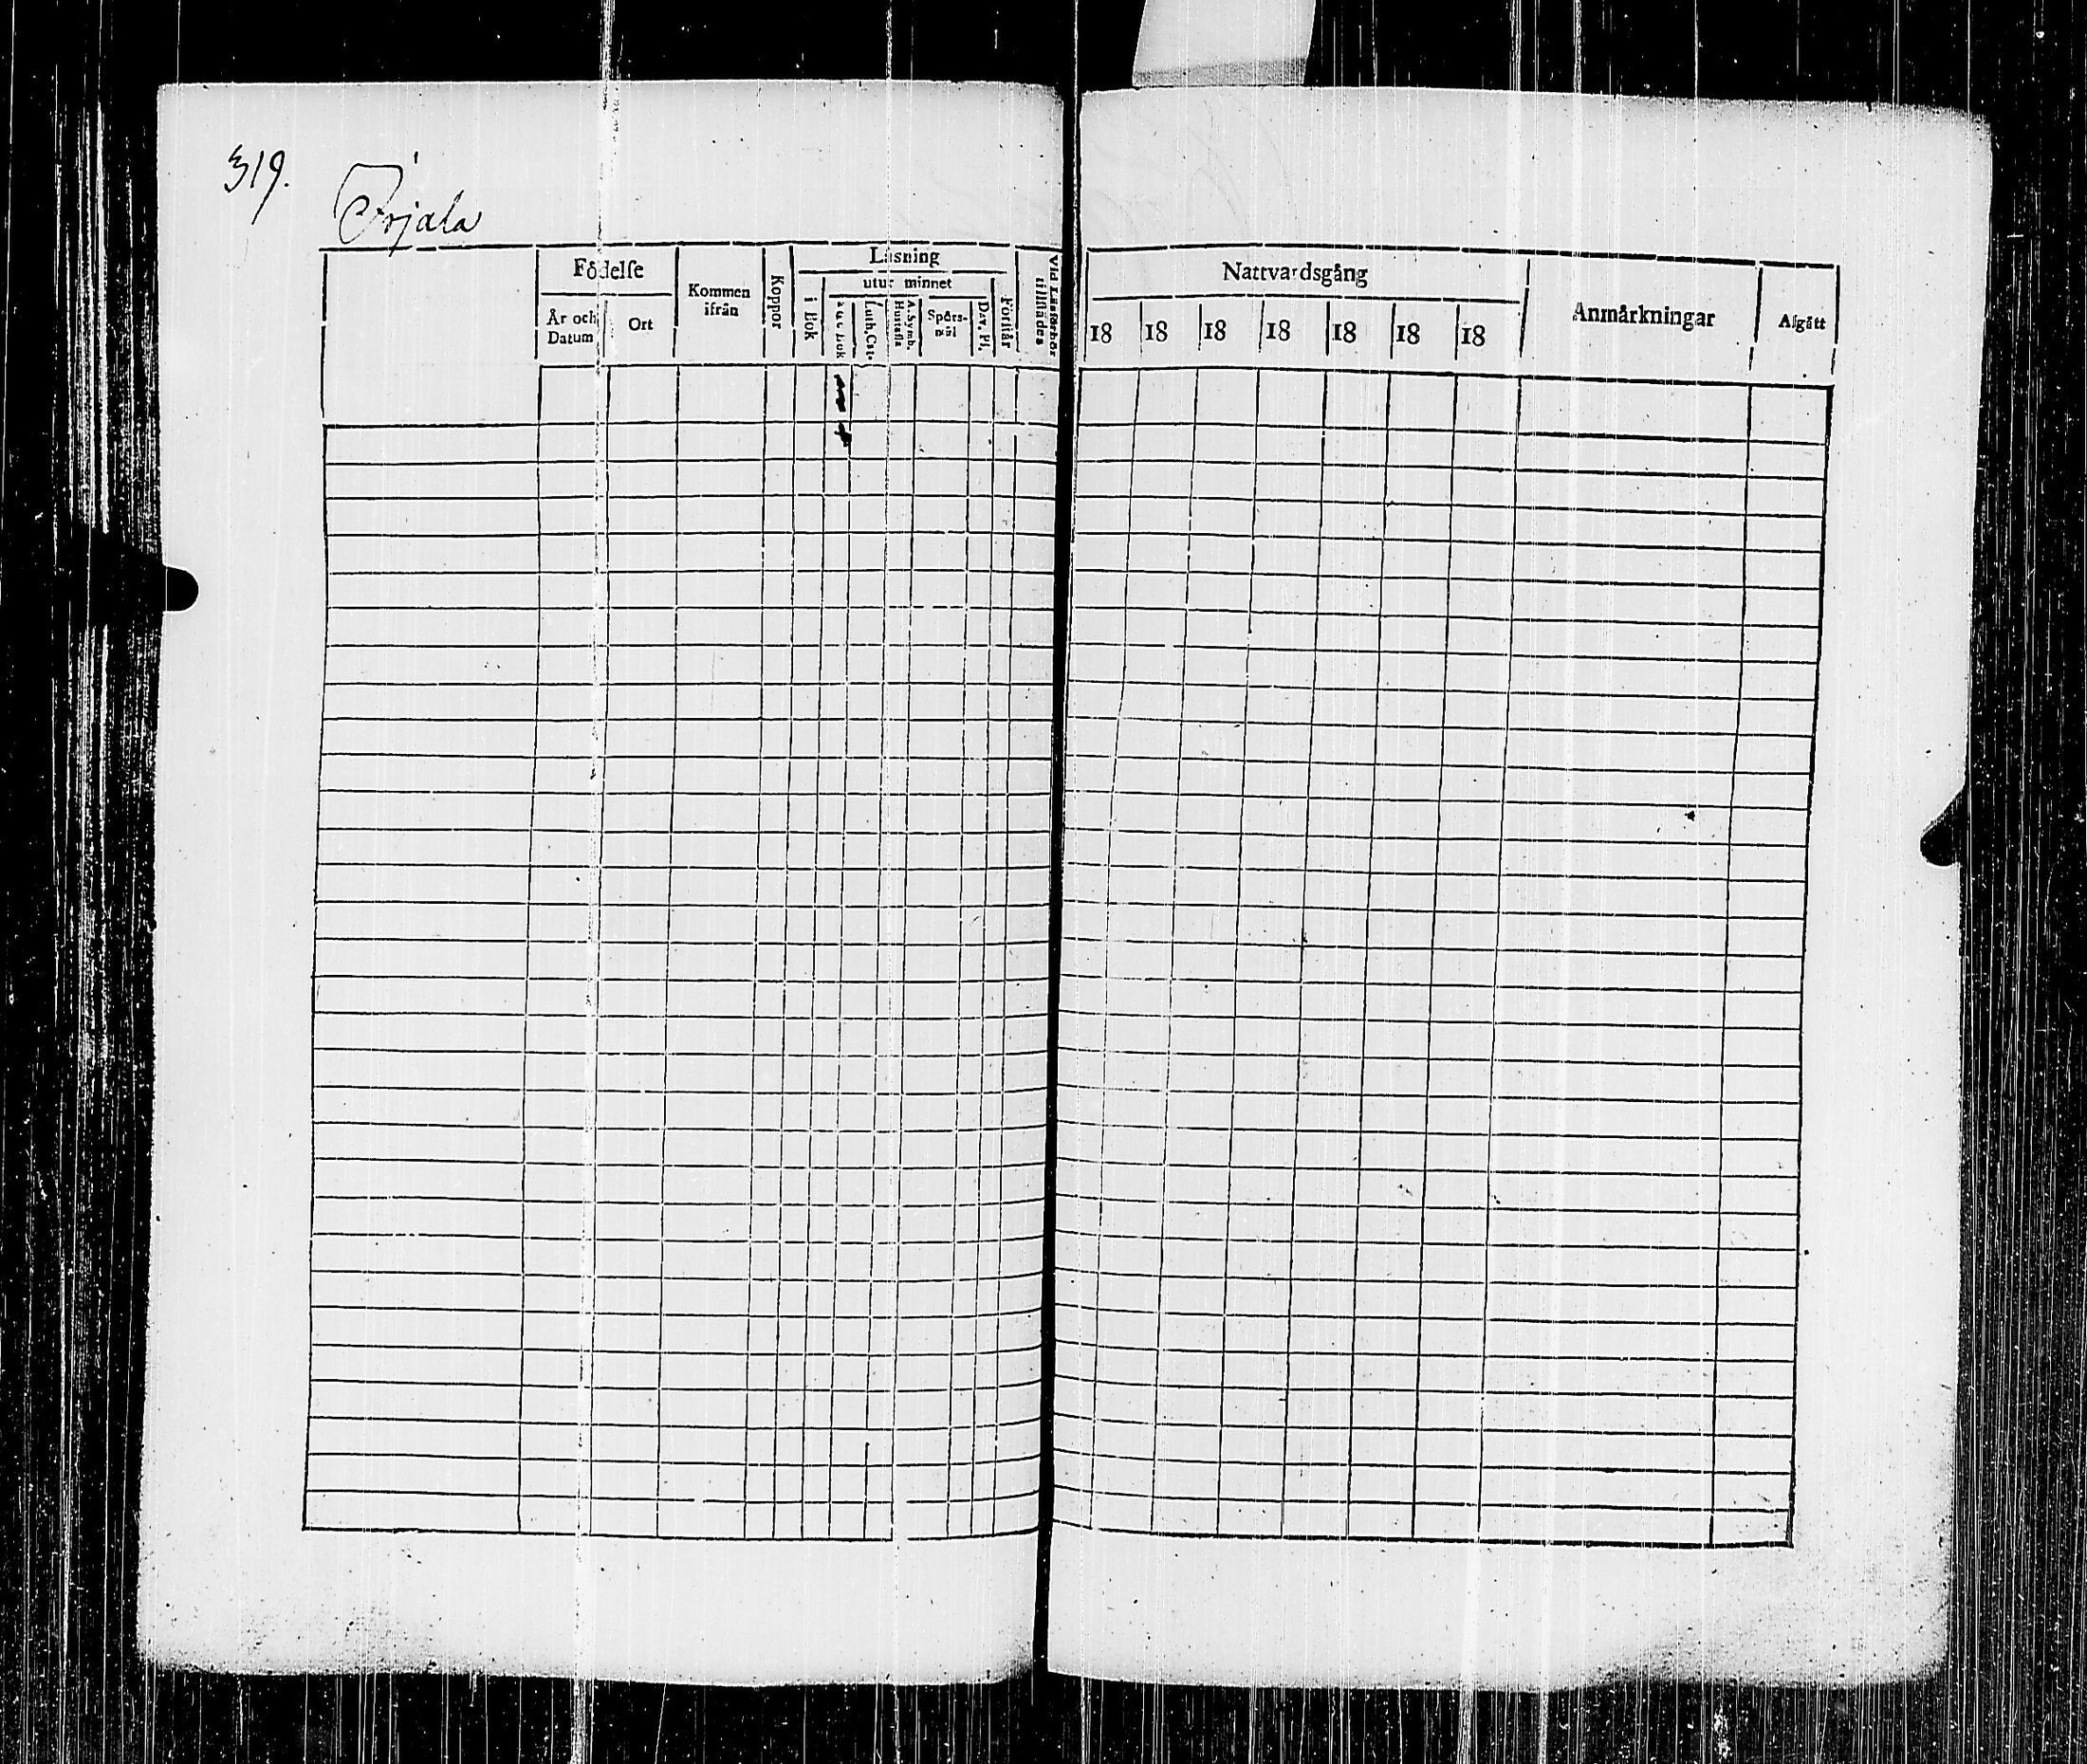 319.
Orjala
Födelse
År och Datum
Ort
Kommen ifrån
Koppor
Läsning
i Bok
utur minnet
a b c Bok
Luth. Cat.
A. Symb. Hustafla
Spörs-mål
Dav. Ps.
Förstår
Vid Läsförhör tillstädes
Nattvardsgång
18 18 18 18 18 18 18
Anmårkningar
Afgått